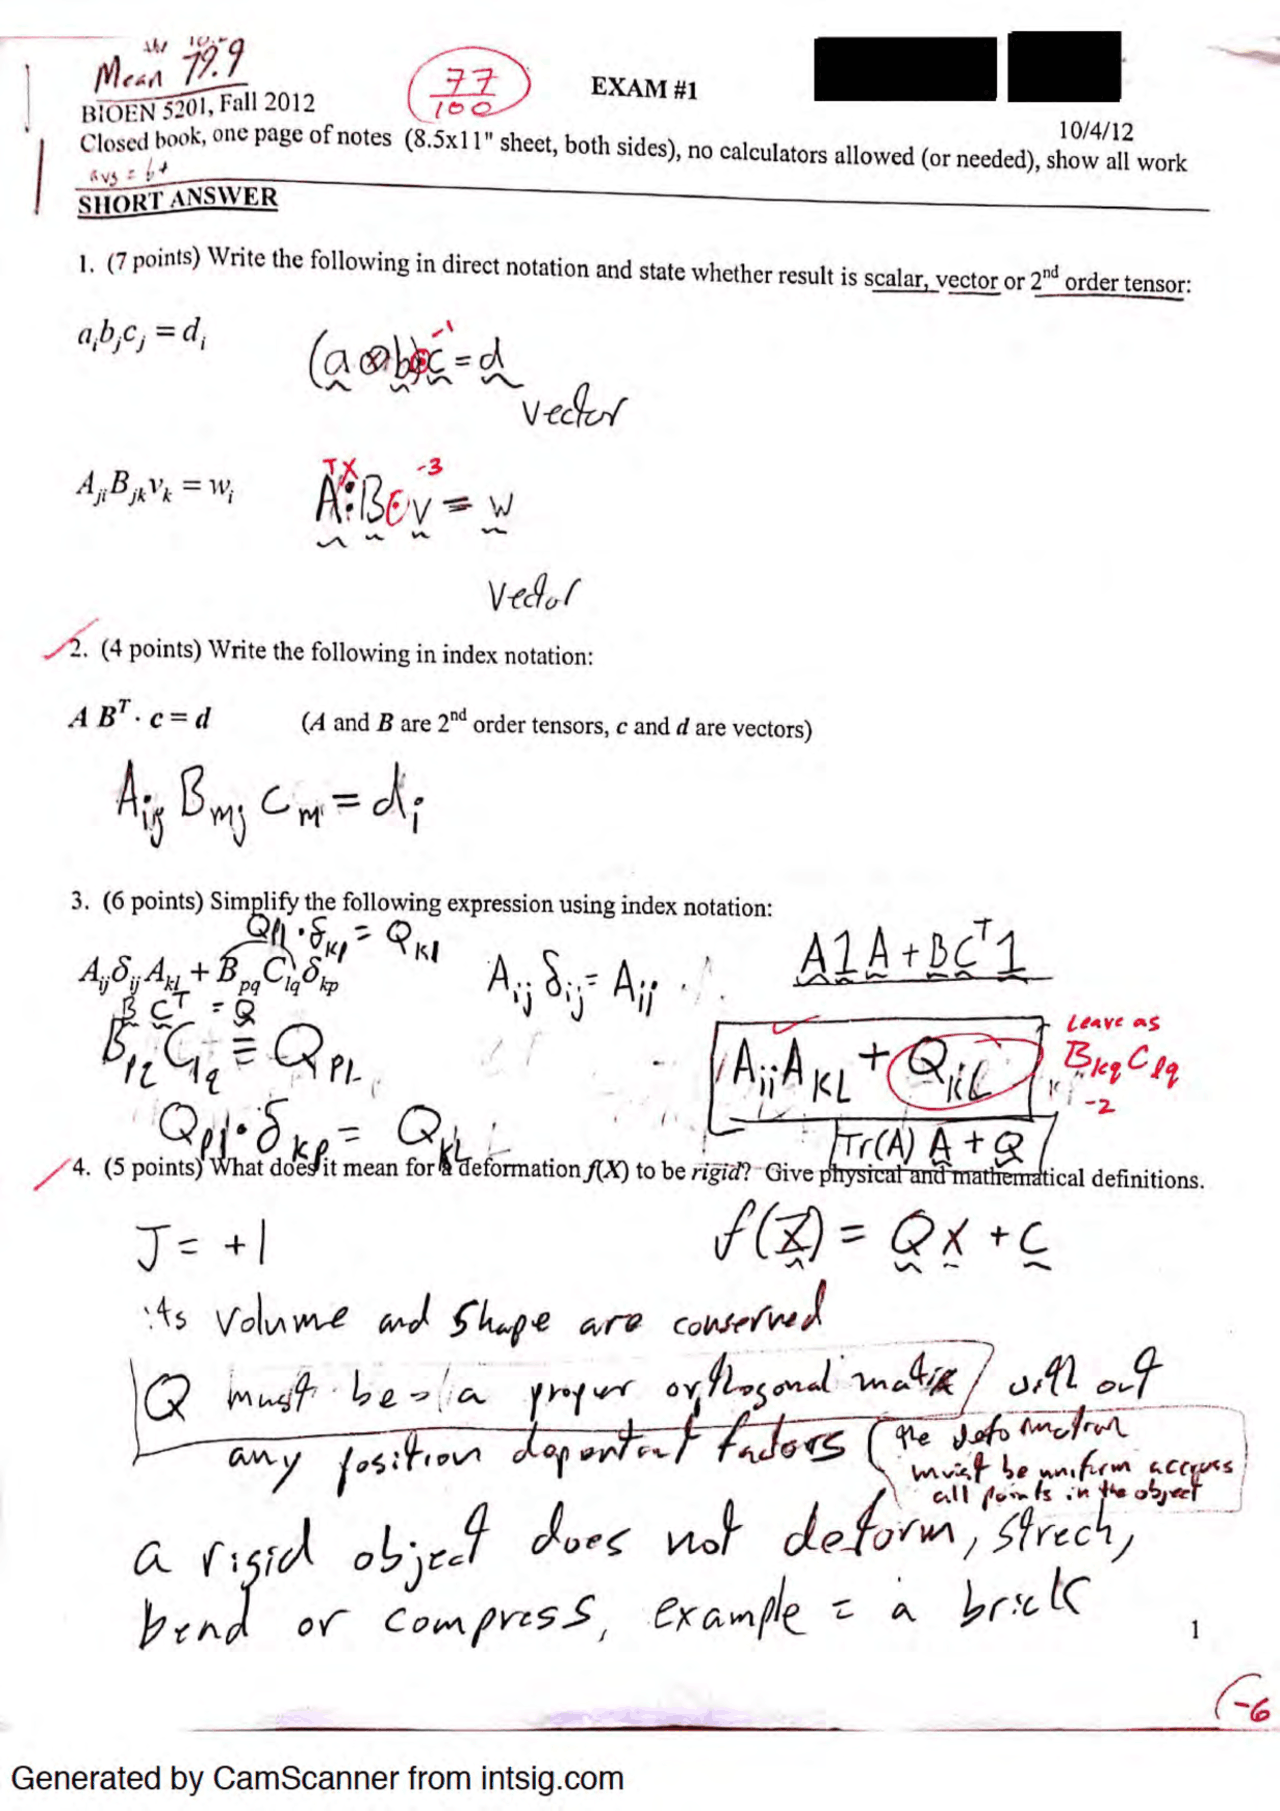 Mean 79.9
77
100
EXAM #1
BIOEN 5201, Fall 2012
10/4/12
Closed book, one page of notes (8.5x11" sheet, both sides), no calculators allowed (or needed), show all work
avg = b+
SHORT ANSWER
1. (7 points) Write the following in direct notation and state whether result is scalar, vector or 2nd order tensor:
aᵢbⱼcⱼ = dᵢ
(a ⊗ b)·c = d
-1
vector
AⱼᵢBⱼₖvₖ = wᵢ
T X -3
A:B·v = w
Vector
2. (4 points) Write the following in index notation:
A Bᵀ · c = d (A and B are 2nd order tensors, c and d are vectors)
Aij Bmj Cm = di
3. (6 points) Simplify the following expression using index notation:
Qpl · δkp = Qkl
A1A + BCᵀ1
AijδijAkl + BpqClqδkp
Aij δij = Aii
B Cᵀ = Q
Bpq Clq = QPL
Leave as
BkqClq
-2
Aii AKL + QKL
Qpl · δkp = QKL
Tr(A) A + Q
4. (5 points) What does it mean for a deformation f(X) to be rigid? Give physical and mathematical definitions.
J = +1
f(X) = QX + C
its volume and shape are conserved
Q must be a proper orthogonal matrix with out
any position dependent factors (the deformation
must be uniform accross
all points in the object
a rigid object does not deform, strech,
bend or compress, example = a brick
1
-6
Generated by CamScanner from intsig.com